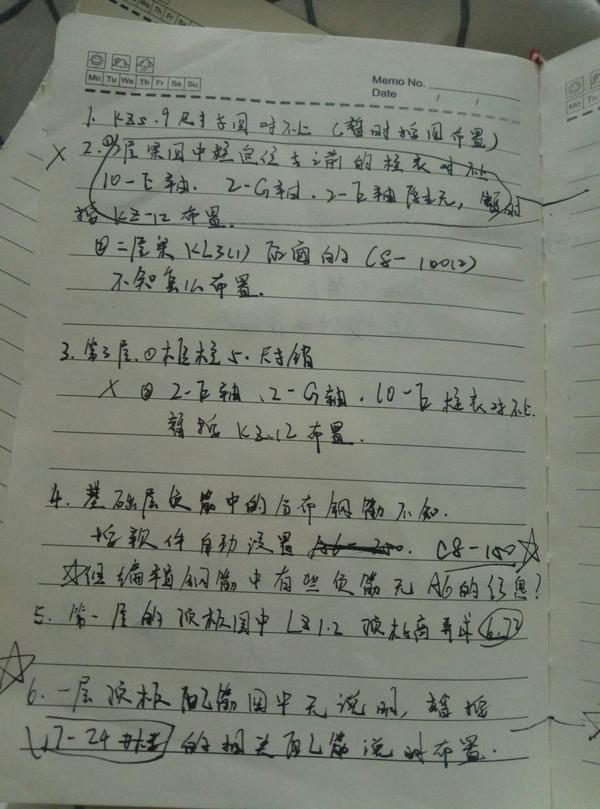 Mo Tu We Th Fr Sa Su
Memo No.
Date / /
1. KZ5.9尺寸与图对不上(暂时按图布置)
2.①层梁图中柱定位与之前的柱表对不上
10-E轴、2-G轴、2-E轴 暂时
按KZ-12布置.
②二层梁KL3(1)后面的C8-100(2)
不知怎么布置.
3.第3层.①框柱5.尺寸错
②2-E轴、2-G轴.10-E柱表对不上.
暂按KZ12布置.
4.基础层负筋中的分布钢筋不知.
按软件自动设置 C8-150
但编辑钢筋中有些负筋无A6的信息?
5.第一层的顶板图中LZ1.2顶标高 6.73
6.一层顶板配筋图中无说明,暂按
17-24 的相关配筋说明布置.